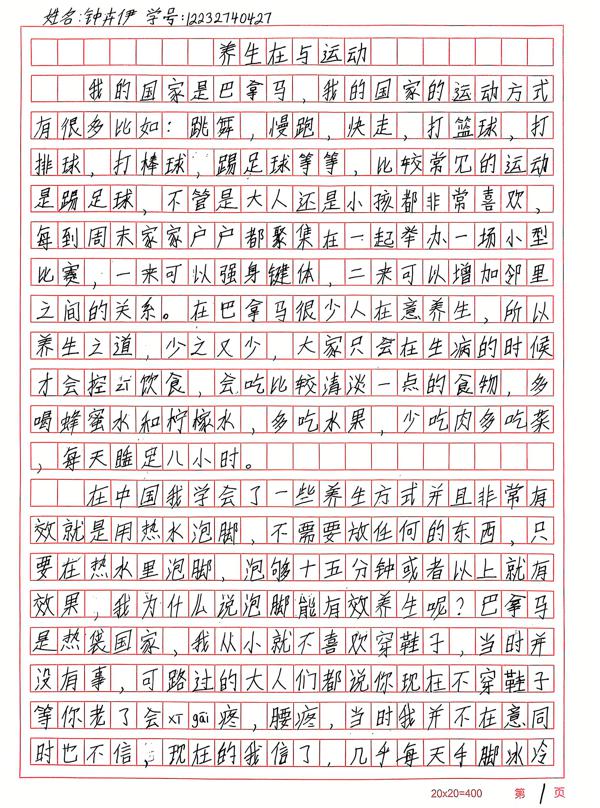 姓名:钟卉伊 学号:12232740427
养生在与运动
我的国家是巴拿马,我的国家的运动方式
有很多比如:跳舞,慢跑,快走,打篮球,打
排球,打棒球,踢足球等等,比较常见的运动
是踢足球,不管是大人还是小孩都非常喜欢,
每到周末家家户户都聚集在一起举办一场小型
比赛,一来可以强身键体,二来可以增加邻里
之间的关系。在巴拿马很少人在意养生,所以
养生之道,少之又少,大家只会在生病的时候
才会控饮食,会吃比较清淡一点的食物,多
喝蜂蜜水和柠檬水,多吃水果,少吃肉多吃菜
,每天睡足八小时。
在中国我学会了一些养生方式并且非常有
效就是用热水泡脚,不需要放任何的东西,只
要在热水里泡脚,泡够十五分钟或者以上就有
效果,我为什么说泡脚能有效养生呢?巴拿马
是热袋国家,我从小就不喜欢穿鞋子,当时并
没有事,可路过的大人们都说你现在不穿鞋子
等你老了会xī gāi疼,腰疼,当时我并不在意同
时也不信,现在的我信了,几乎每天手脚冰冷
20x20=400 第 1 页